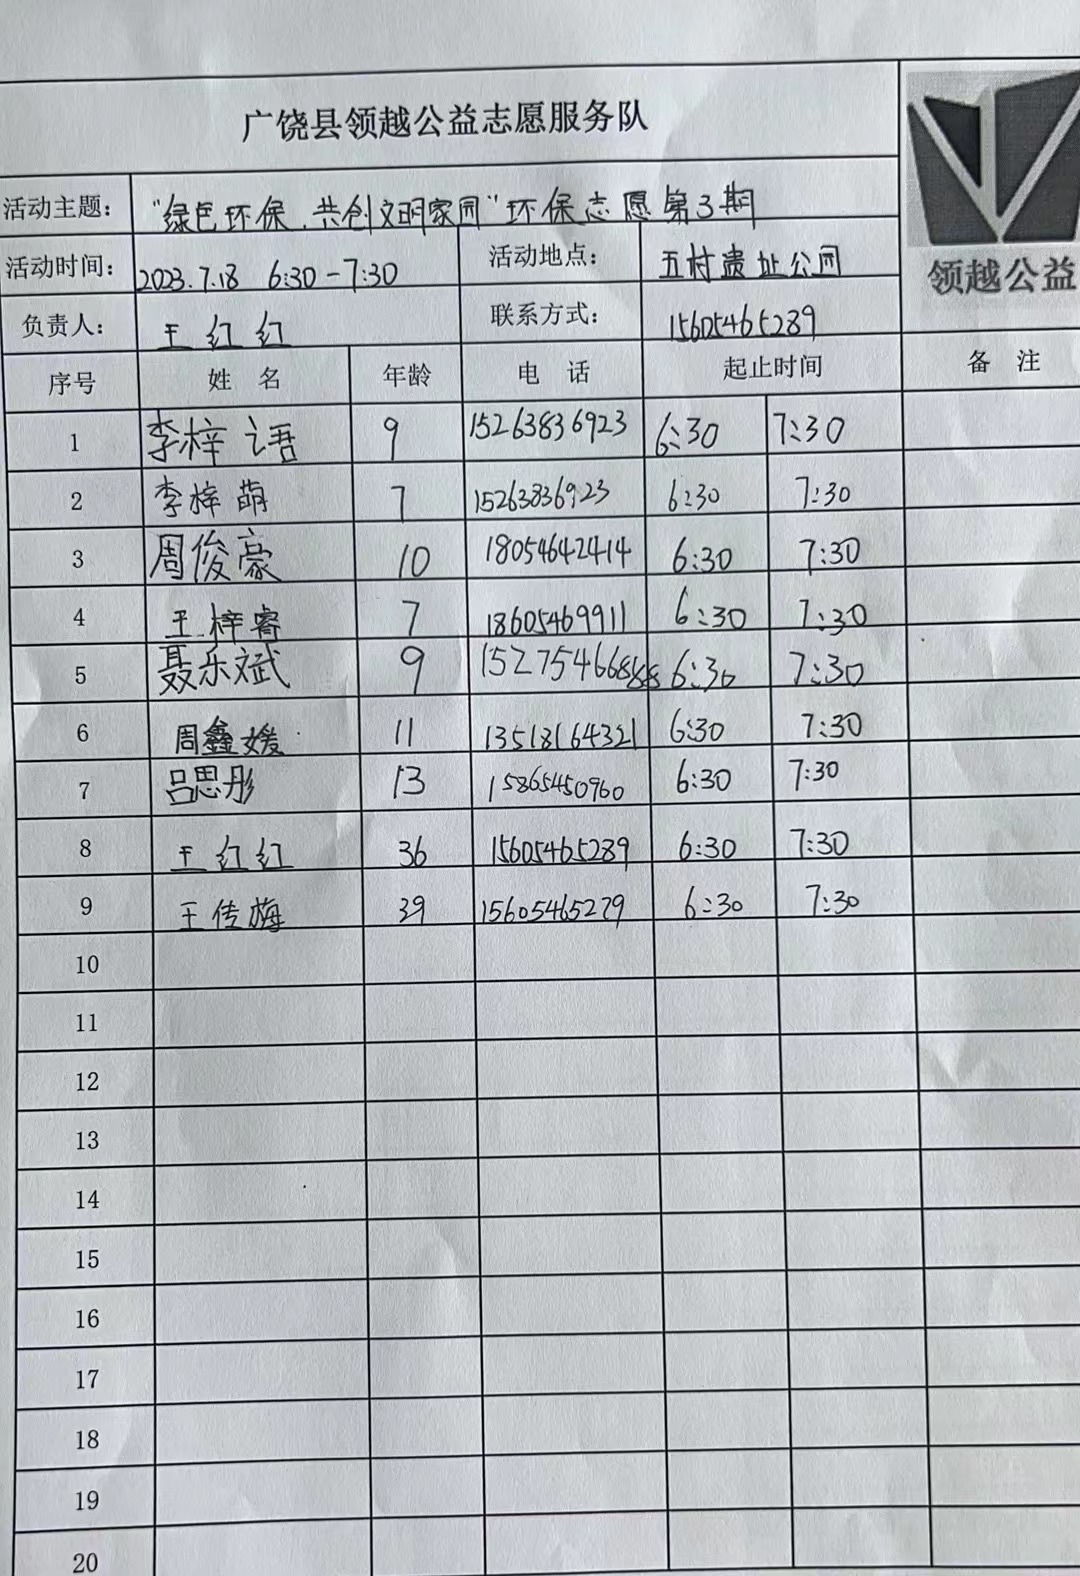 广饶县领越公益志愿服务队
领越公益
活动主题： “绿色环保.共创文明家园”环保志愿第3期
活动时间： 2023.7.18 6:30-7:30 活动地点： 五村遗址公园
负责人： 王红红 联系方式： 15605465289
序号 姓名 年龄 电话 起止时间 备注
1 李梓语 9 15263836923 6:30 7:30
2 李梓萌 7 15263836923 6:30 7:30
3 周俊豪 10 18054642414 6:30 7:30
4 王梓睿 7 18605469911 6:30 7:30
5 聂乐斌 9 6:30 7:30
6 周鑫媛 11 13518164321 6:30 7:30
7 吕思彤 13 15865450960 6:30 7:30
8 王红红 36 15605465289 6:30 7:30
9 王传梅 39 15605465279 6:30 7:30
10
11
12
13
14
15
16
17
18
19
20